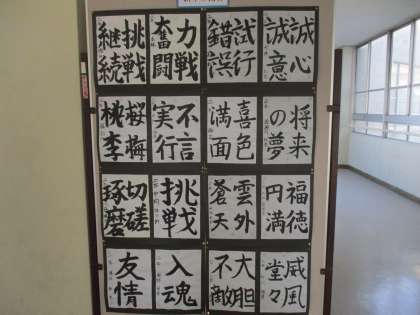 誠心
誠意
試行
錯誤
力戦
奮闘
挑戦
継続
将来
の夢
喜色
満面
不言
実行
桜梅
桃李
福徳
円満
雲外
蒼天
挑戦
切磋
琢磨
威風
堂々
大胆
不敵
入魂
友情